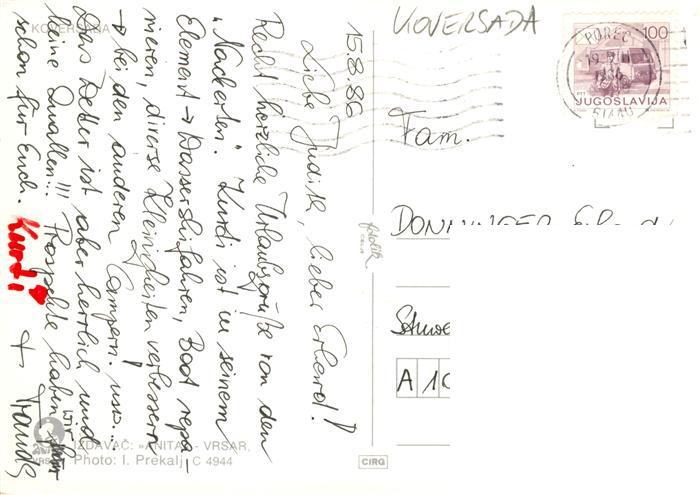 KOVERSADA
15.8.86
Liebe Judith, lieber Erhard!
Recht herzliche Urlaubsgrüße von den
"Nackerten". Kurti ist in seinem
Element → Wasserskifahren, Boot repa-
rieren, diverse Kleinigkeiten verbessern
→ bei den anderen Campern. usw...
Das Wetter ist aber herrlich und
keine Quallen!!! Prospekte haben wir
schon für Euch. Kurti + Traude
IZDAVAČ: »ANITA« - VRSAR,
Photo: I. Prekalj C 4944
fotolik
CIRG
KOVERSADA
POREC
100
PTT JUGOSLAVIJA
Fam.
DONNINGER
A 10